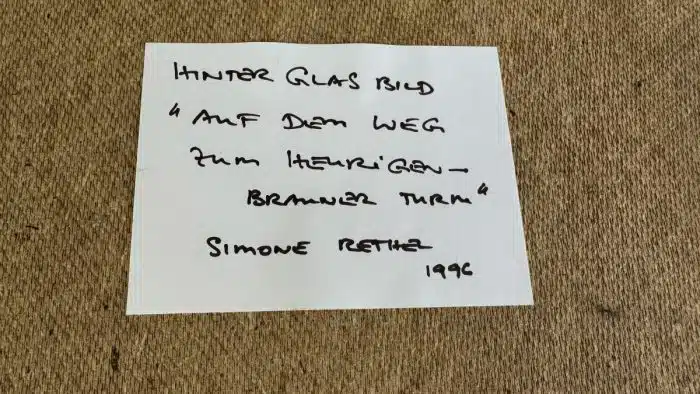 HINTER GLAS BILD
"AUF DEM WEG
ZUM HEURIGEN-
BRAUNER TURM"
SIMONE RETHEL
1996